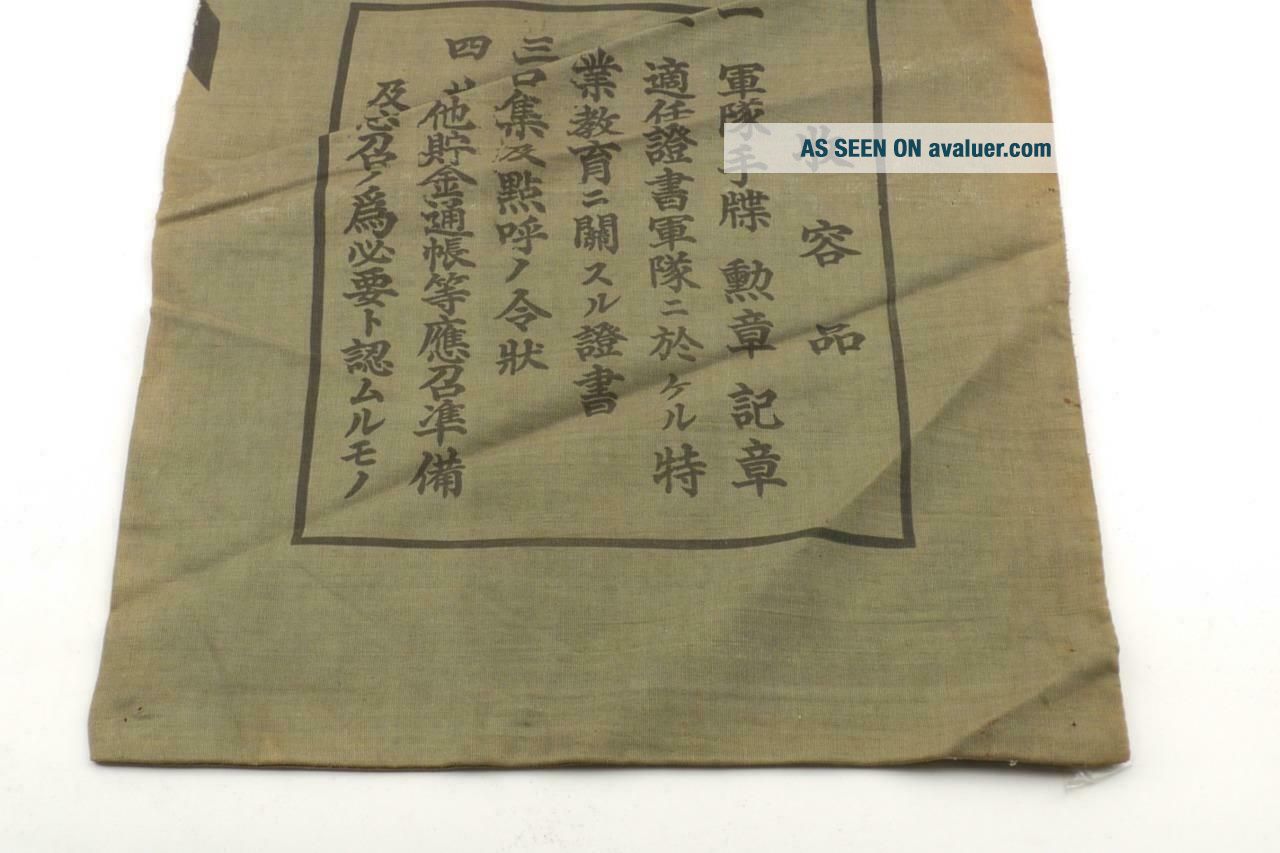 收容品
一 軍隊手牒 勲章 記章
適任證書軍隊ニ於ケル特
業教育ニ關スル證書
三 召集及點呼ノ令狀
四 其他貯金通帳等應召準備
及應召ノ爲必要ト認ムルモノ
AS SEEN ON avaluer.com